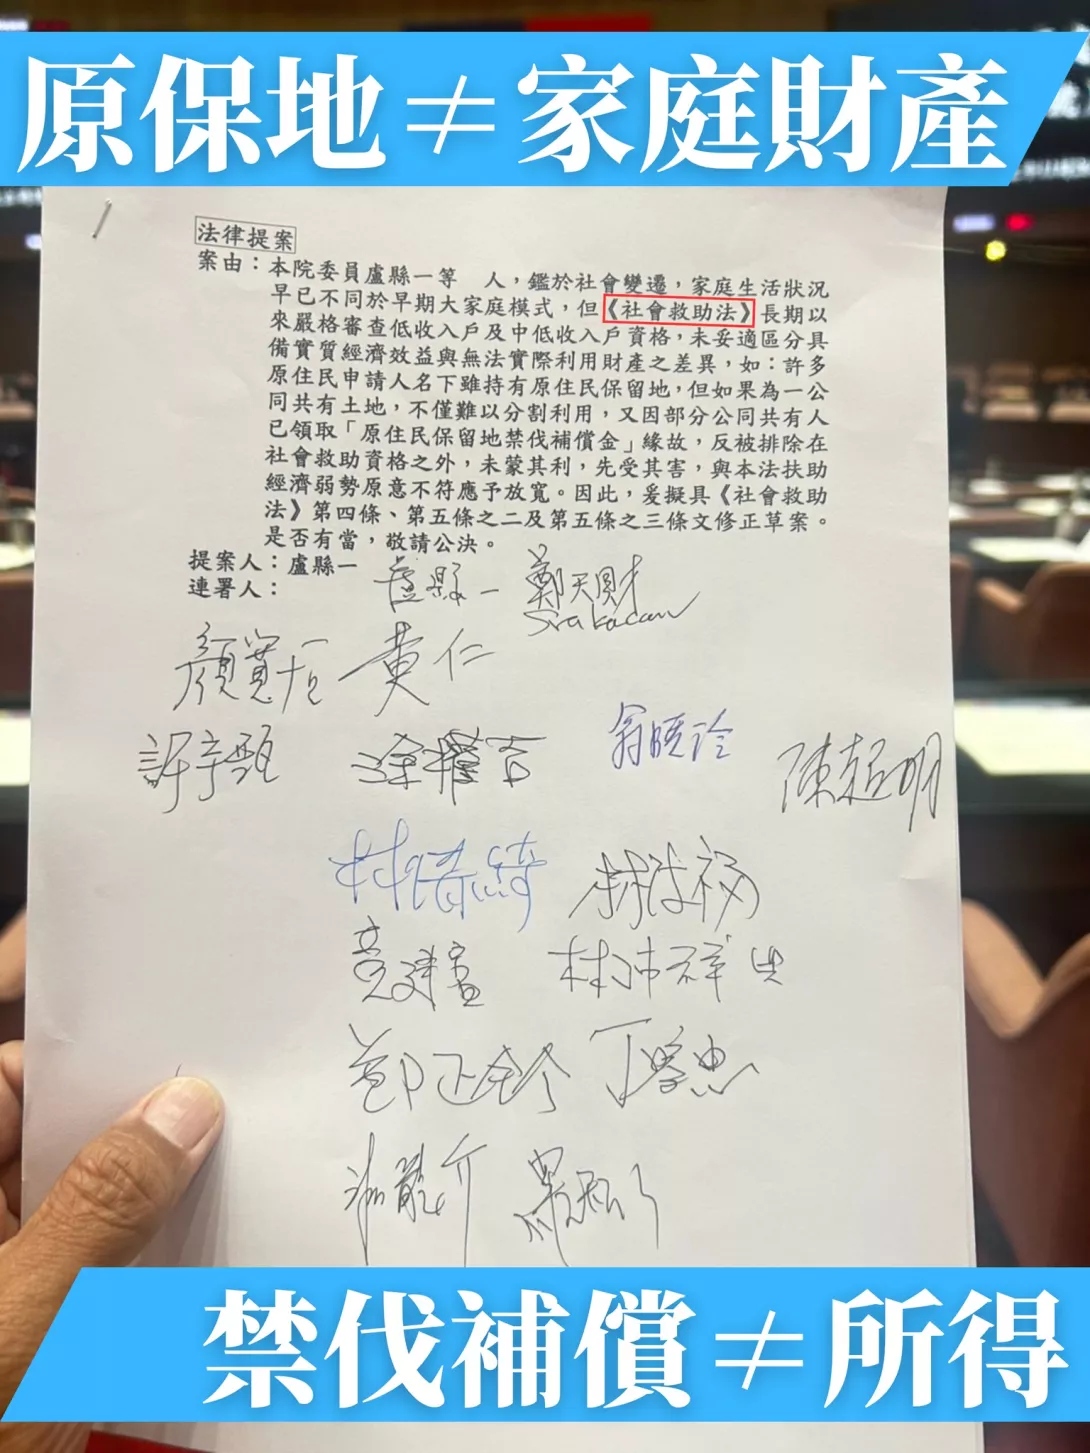 原保地≠家庭財產
法律提案
案由：本院委員盧縣一等　人，鑑於社會變遷，家庭生活狀況
早已不同於早期大家庭模式，但《社會救助法》長期以
來嚴格審查低收入戶及中低收入戶資格，未妥適區分具
備實質經濟效益與無法實際利用財產之差異，如：許多
原住民申請人名下雖持有原住民保留地，但如果為一公
同共有土地，不僅難以分割利用，又因部分公同共有人
已領取「原住民保留地禁伐補償金」緣故，反被排除在
社會救助資格之外，未蒙其利，先受其害，與本法扶助
經濟弱勢原意不符應予放寬。因此，爰擬具《社會救助
法》第四條、第五條之二及第五條之三條文修正草案。
是否有當，敬請公決。
提案人：盧縣一
連署人：
盧縣一 鄭天財
Sra Kacaw
黃仁
許宇甄 涂權吉 翁曉玲 陳超明
林倩綺 林德福
黃建賓 林沛祥
鄭正鈐 丁學忠
禁伐補償≠所得